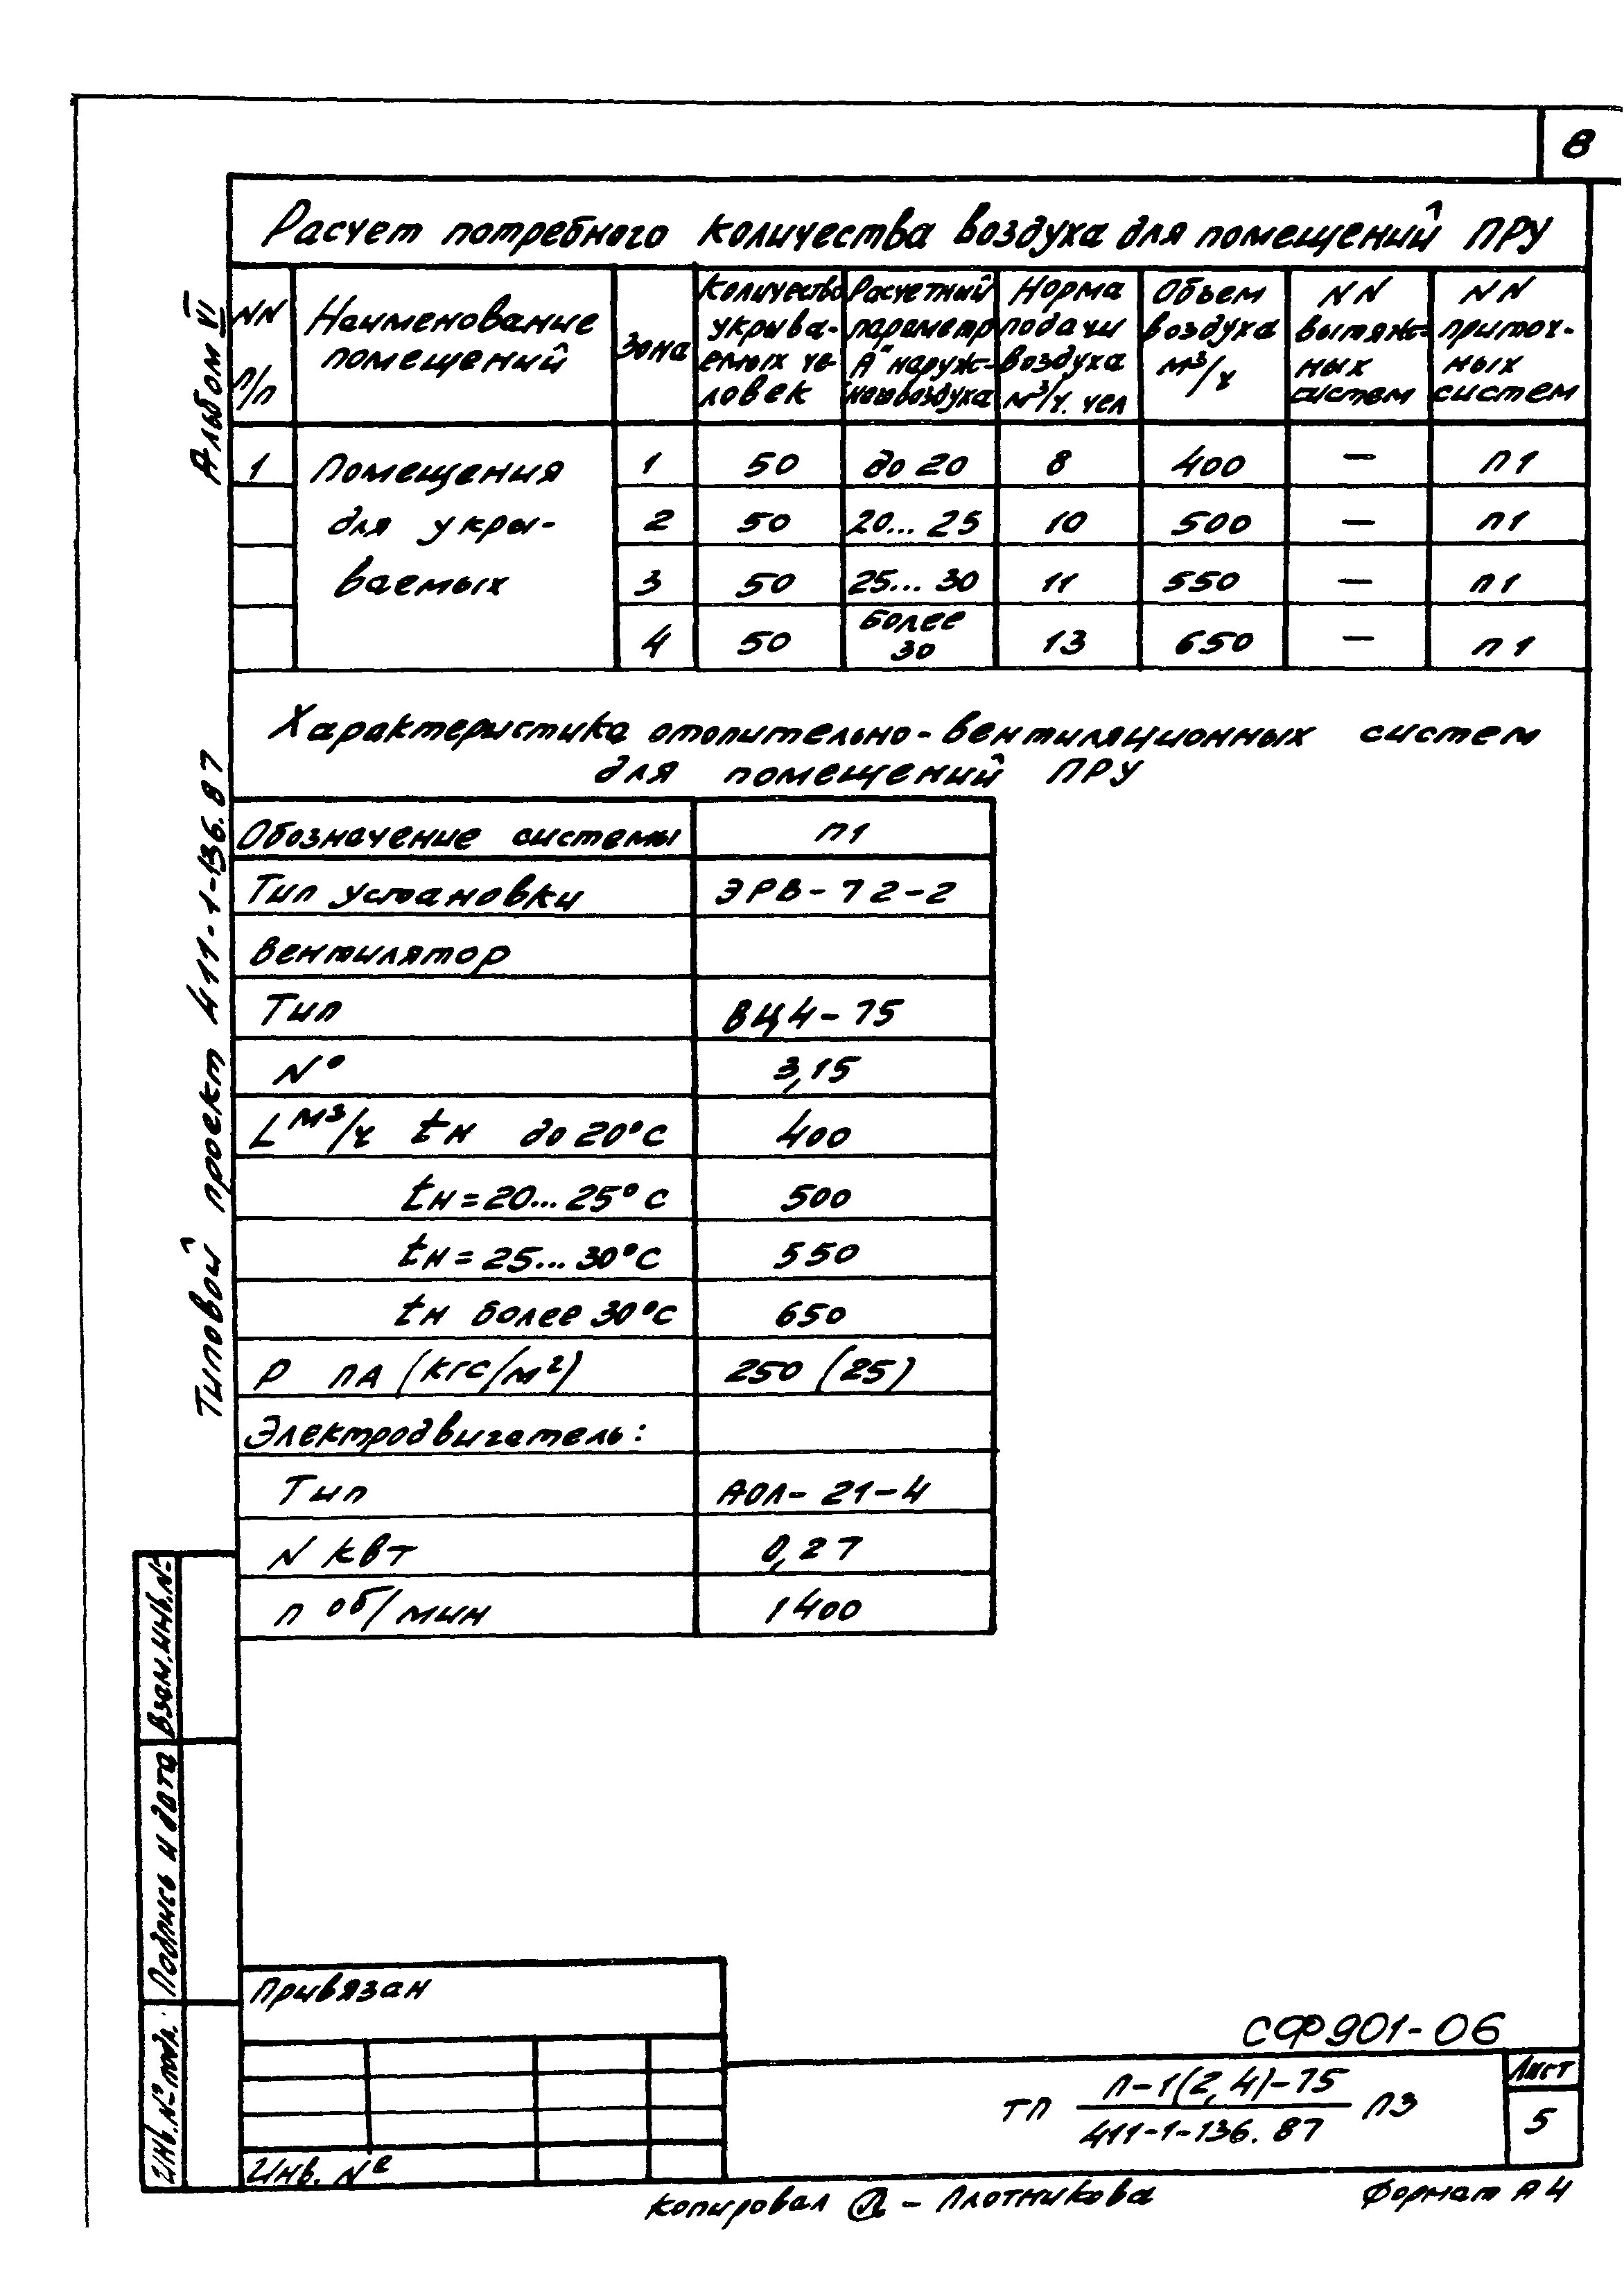 8
Расчет потребного количества воздуха для помещений ПРУ
NN п/п
Наименование помещений
Зона
Количество укрыва- емых че- ловек
Расчетный параметр "А" наруж- ного воздуха
Норма подачи воздуха м³/ч. чел
Объем воздуха м³/ч
NN вытяж- ных систем
NN приточ- ных систем
1 Помещения 1 50 до 20 8 400 — П1
для укры- 2 50 20... 25 10 500 — П1
ваемых 3 50 25... 30 11 550 — П1
4 50 более 30 13 650 — П1
Характеристика отопительно-вентиляционных систем
для помещений ПРУ
Обозначение системы П1
Тип установки ЭРВ-72-2
Вентилятор
Тип ВЦ4-75
№ 3,15
L м³/ч tн до 20°С 400
tн=20...25°С 500
tн=25...30°С 550
tн более 30°С 650
Р ПА (кгс/м²) 250 (25)
Электродвигатель:
Тип АОЛ-21-4
N квт 0,27
п об/мин 1400
Альбом VI
Типовой проект 411-1-136.87
Взам.инв.№
Подпись и дата
Инв.№ подл.
Привязан
Инв. №
СФ901-06
ТП П-1(2,4)-75 ПЗ
411-1-136.87
Лист
5
Копировал Л - Плотникова
Формат А4